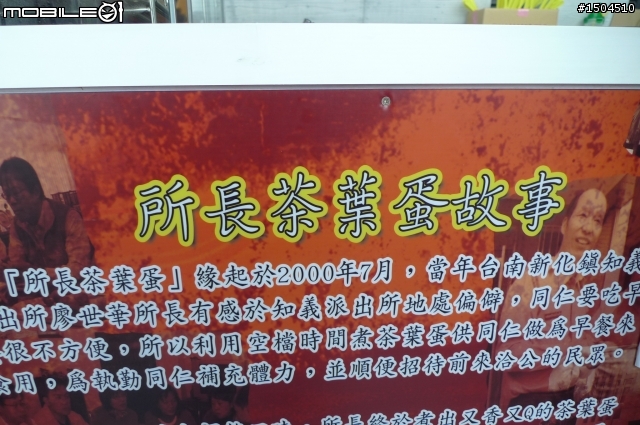 MOBILE01
#1504510
所長茶葉蛋故事
「所長茶葉蛋」緣起於2000年7月,當年台南新化鎮知義
出所廖世華所長有感於知義派出所地處偏僻,同仁要吃早
很不方便,所以利用空檔時間煮茶葉蛋供同仁做為早餐來
食用,為執勤同仁補充體力,並順便招待前來洽公的民眾。
所長終於煮出又香又Q的茶葉蛋